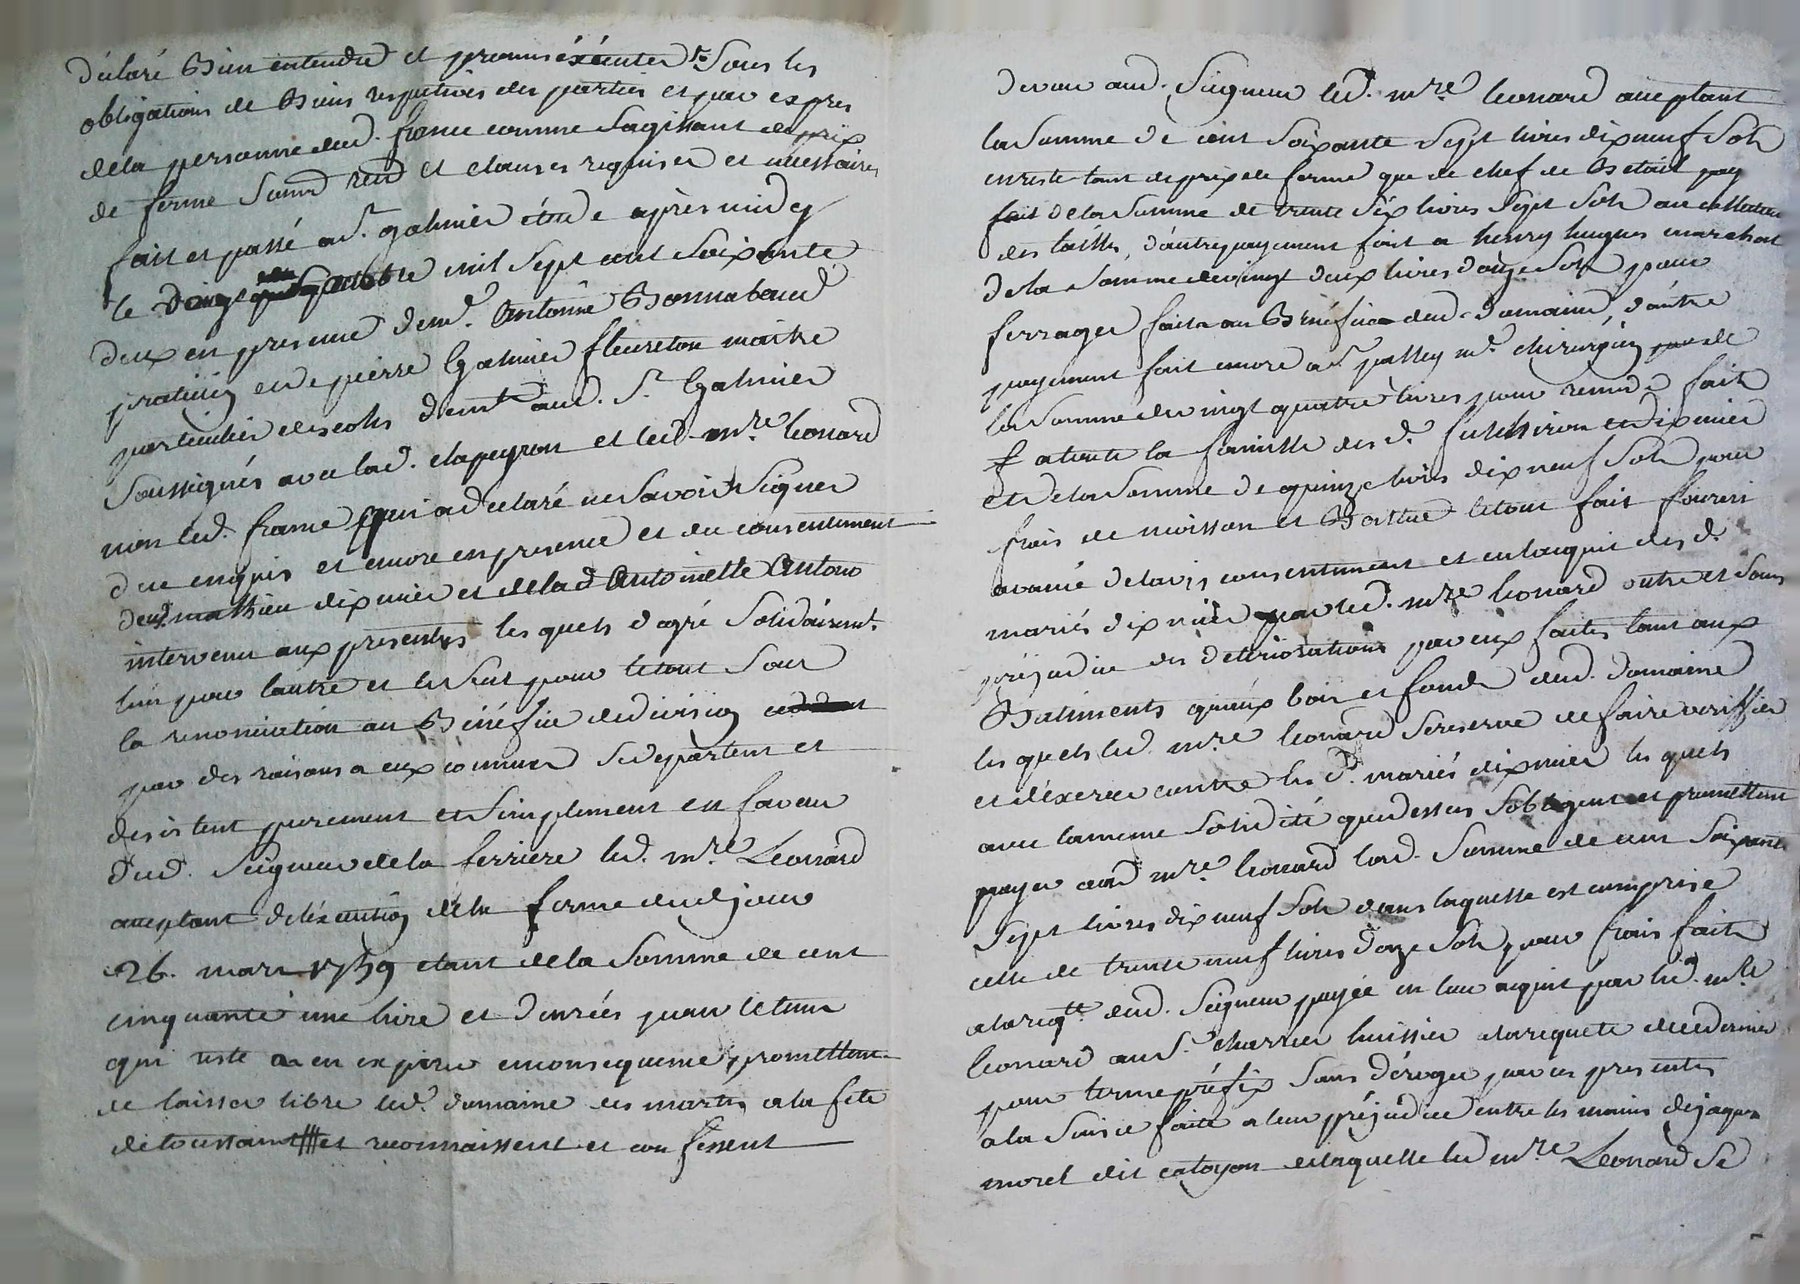 déclaré Bien entendre et promis éxécuter Sous les
obligations de Biens respectives des parties et par expres
de la personne dud. france comme Sagissant de prix
de ferme Soumd rend et clauses requises et necessaires
fait et passé a St. galmier étude après midy
le vingt octobre mil Sept cent Soixante
deux en presence de mr. Antoine Bonnabaud
praticien et de pierre Galmier fleureton maitre
particulier descolles demt. aud. St. Galmier
Soussignés avec lad. clapeyron et led. mre. leonard
non led. france qui a declaré ne Savoir Signer
due enquis et encore en presence et du consentement
dud. mathieu dixmier et de lad. Antoinette Antono
intervenu aux presentes les quels dagré Solidairemt.
lun pour lautre et le Seul pour letout Sous
la renonciation au Bénéfice de division
par des raisons a eux connues Se departent et
desistent purement et Simplement en faveur
dud. Seigneur de la ferriere led. mre. Leonard
aceptant de léxécution de la ferme du djour
26. mars 1759 etant de la Somme de cent
cinquante une livre et denrées pour le tems
qui reste a en expirer en consequence, promettent
de laisser libre led. domaine des martin a la fete
de toussaint et reconnaissent et confessent
devoir aud. Seigneur led. mre. leonard aceptant
la Somme de cent Soixante Sept livres dix neuf Sols
en reste tant de prix de ferme que de chef de Betail pay
fait de la Somme de trente Six livres Sept Sols au collecteur
des tailles, d'autre payement fait a henry hugues marechal
de la Somme de vingt deux livres douze Sols pour
ferrages faits au Bénéfice dud. domaine, d'autre
payement fait encore a Sr. palley mr. chirurgien de
la Somme de vingt quatre livres pour remede fait
a toute la famille desd. fulchiron et dixmier
et de la Somme de quinze livres dix neuf Sols pour
frais de moisson et Battue le tout fait fourni
avancé de lavis consentement et en lacquit desd.
mariés dixmier par led. mre. leonard outre et Sans
prejudice des deteriorations par eux faites tant aux
Batiments qu'aux bois et fonds dud. domaine
les quels led. mre. leonard Se reserve de faire veriffier
et d'éxercer contre les d. mariés dixmier les quels
avec la meme Solidité que dessus S'obligent et promettent
payer aud. mre. leonard lad. Somme de cent Soixante
Sept livres dix neuf Sols dans laquelle est comprise
celle de trente neuf livres douze Sols pour frais faits
a la reqte. dud. Seigneur payée en leur aquit par led. mre.
leonard au Sr. charrier huissier a la requete de ce dernier
pour terme préfix Sans déroger par ces presentes
a la Saisie faite a leur préjudice entre les mains de jaques
morel dit catoyon de laquelle led. mre. Leonard Se